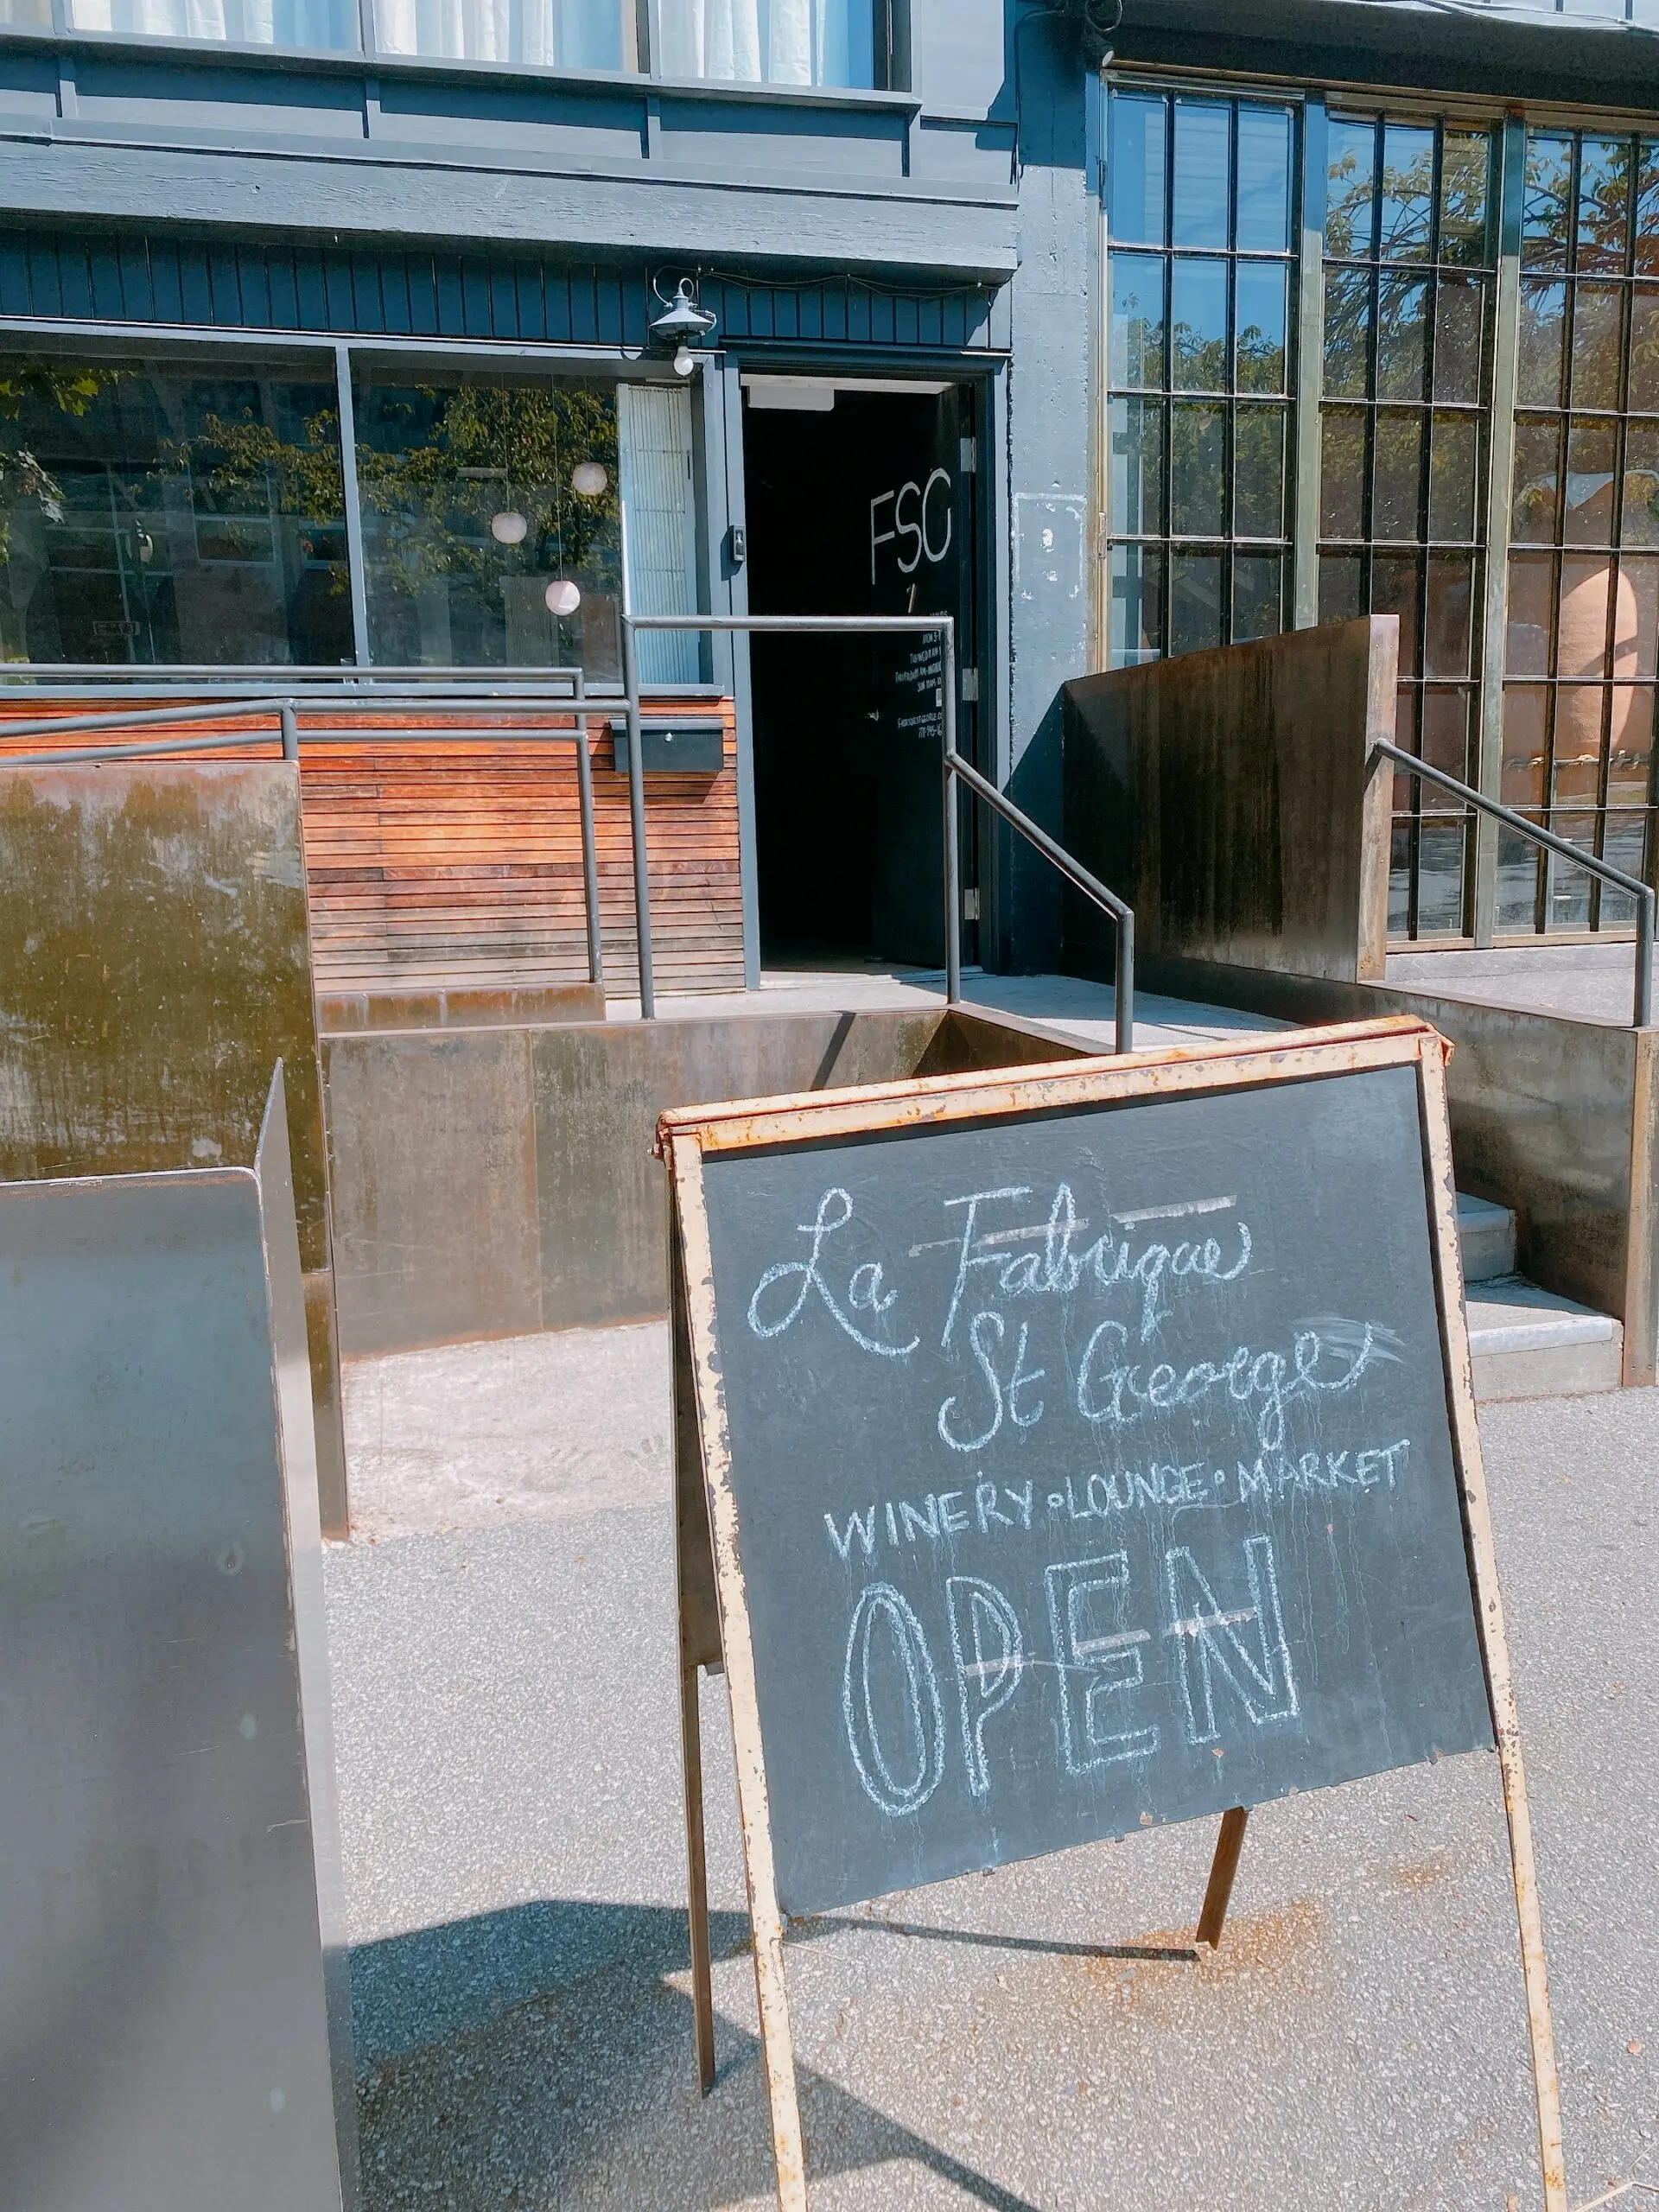 FSG
La Fabrique
St George
WINERY • LOUNGE • MARKET
OPEN